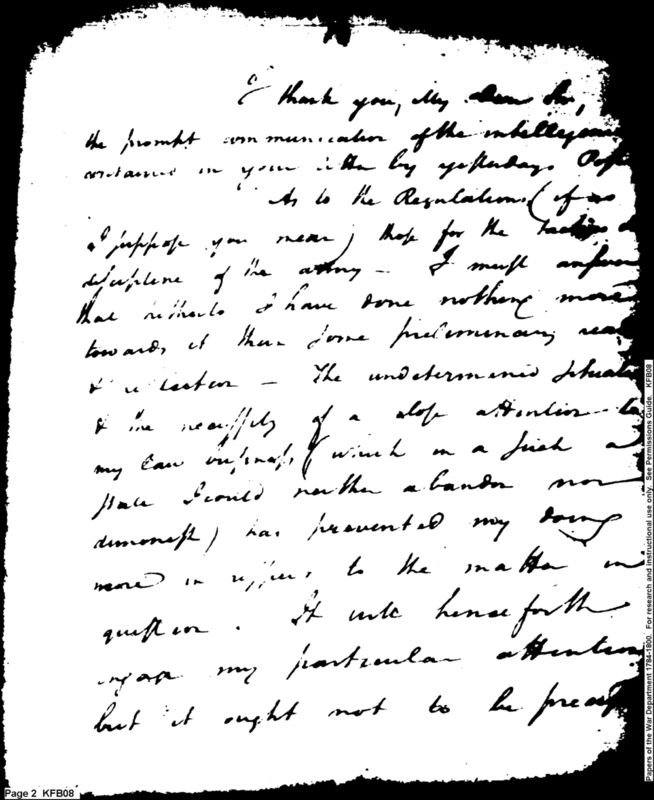 I thank you, My Dear Sir,
the prompt communication of the intelligence
contained in your letter by yesterdays Post
As to the Regulations (if as
I suppose you mean) those for the tactics &
discipline of the army — I must answer
that hitherto I have done nothing more
towards it than some preliminary
& — The undetermined situation
& the necessity of a close attention to
my Law business (which in a such a
state I could neither abandon nor
) has prevented my doing
more in respect to the matter in
question. It will henceforth
engage my particular attention
but it ought not to be
Page 2 KFB08
Papers of the War Department 1784-1800. For research and instructional use only. See Permissions Guide. KFB08